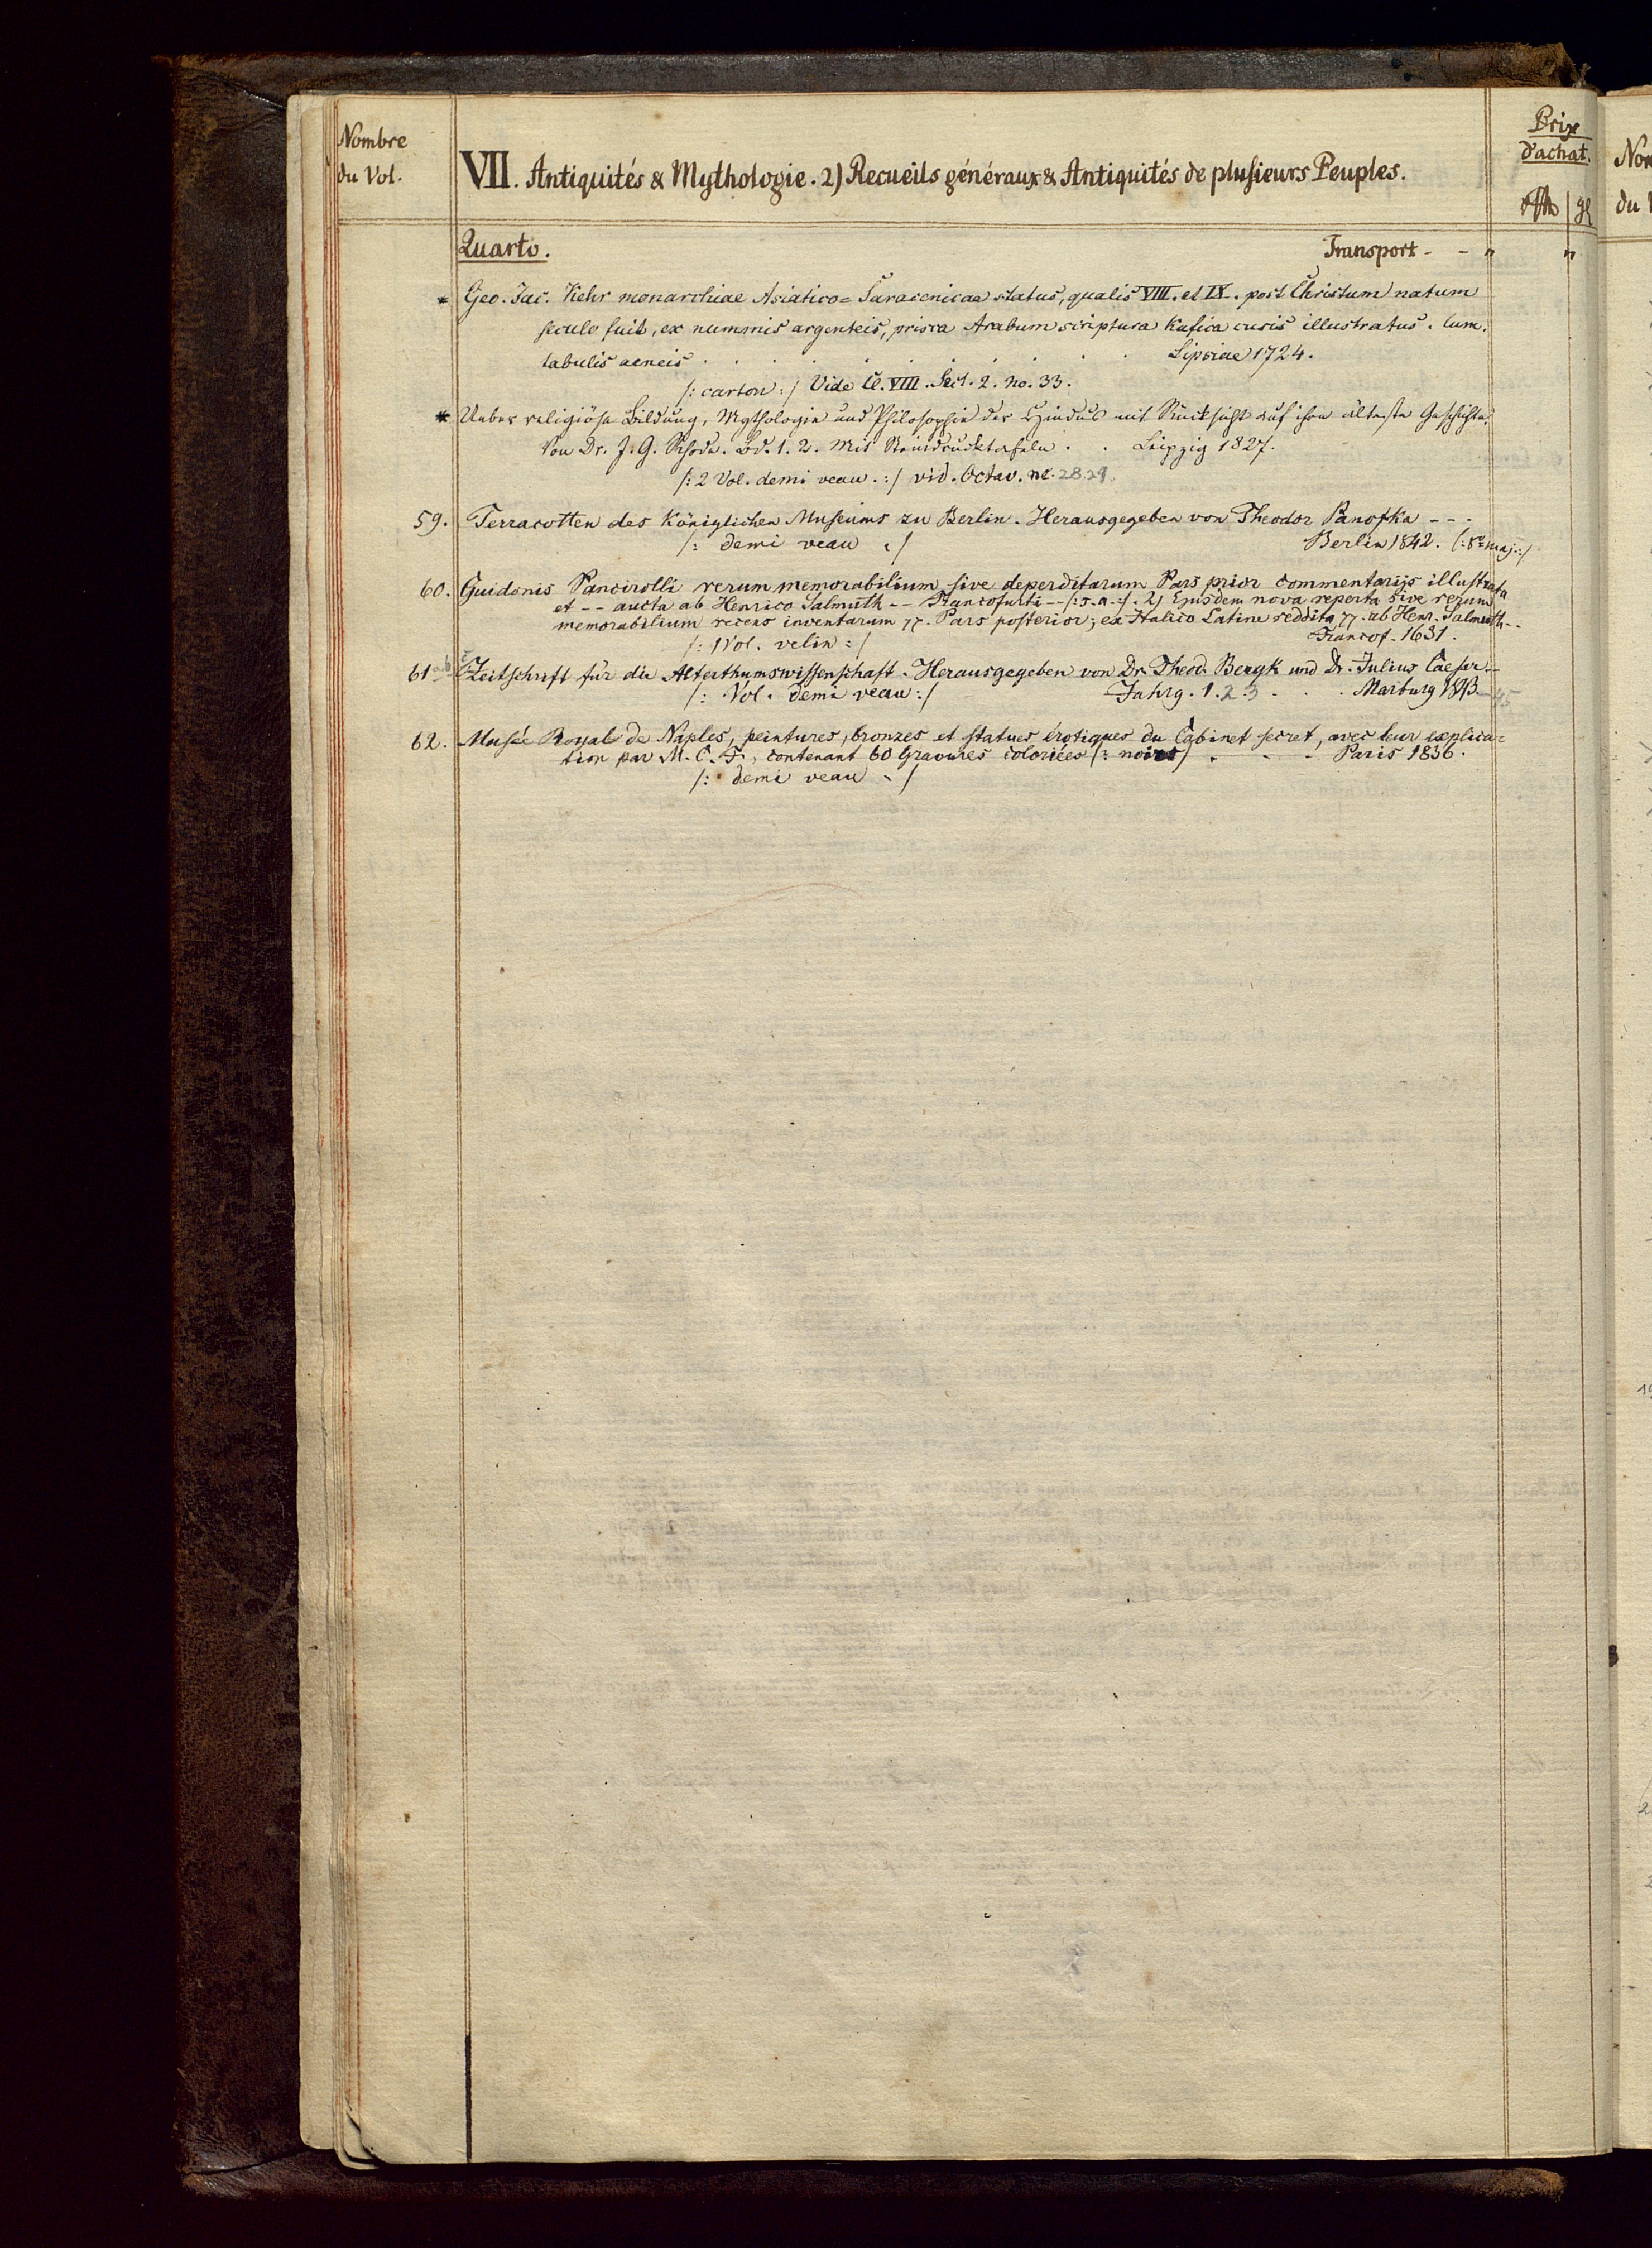 Nombre
du Vol.
VII. Antiquités & Mythologie. 2) Recueils généraux & Antiquités de plusieurs Peuples.
Prix
d'achat.
Quarto. Transport - - " "
* Geo. Jac. Kehr monarchiae Asiatico= Saracenicae status, qualis VIII. et IX. post Christum natum
seculo fuit, ex nummis argenteis, prisca Arabum scriptura Kufica cusis illustratus. Cum.
tabulis aeneis . . . . . . . . . Lipsiae 1724.
/: carton :/ Vide Cl. VIII. Sect. 2. no. 33.
* Ueber religiöse Bildung, Mythologie und Philosophie der Hindus mit Rücksicht auf ihre älteste Geschichte.
Von Dr. J. G. Rhode. Bd. 1. 2. Mit Steindrucktafeln . . Leipzig 1827.
/: 2 Vol. demi veau. :/ vid. Octav. no. 28.29.
59. Terracotten des Königlichen Museums zu Berlin. Herausgegeben von Theodor Panofka - - -
/: demi veau :/ Berlin 1842. (:8° maj:/
60. Guidonis Pancirolli rerum memorabilium sive deperditarum Pars prior commentarijs illustrata
et - - aucta ab Henrico Salmuth - - Francofurti - - /: s. a. :/. 2) Ejusdem nova reperta sive rerum
memorabilium recens inventarum . Pars posterior; ex Italico Latine reddita . ab Henr. Salmuth - -
/: 1 Vol. velin :/ Francof. 1631.
61 Zeitschrift für die Alterthumswissenschaft. Herausgegeben von Dr. Theod. Bergk und Dr. Julius Caesar - -
/: Vol. demi veau :/ Jahrg. 1. 2. 3 . . . Marburg 1843-45
62. Musée Royal de Naples, peintures, bronzes et statues érotiques du Cabinet secret, avec leur explica=
tion par M. C. F., contenant 60 Gravures coloriées (: noires) . - - Paris 1836.
/: demi veau :/